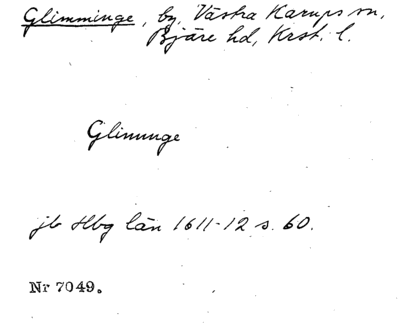 Glimminge, by, Västra Karups sn,
Bjäre hd, Krst. l.
Glimunge
jb Hbg län 1611-12 s. 60.
Nr 7049.